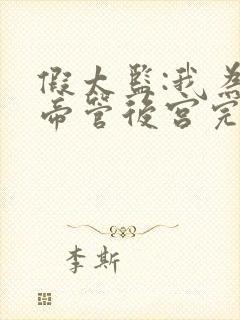 假太監:我為
帝管後宮完
李斯